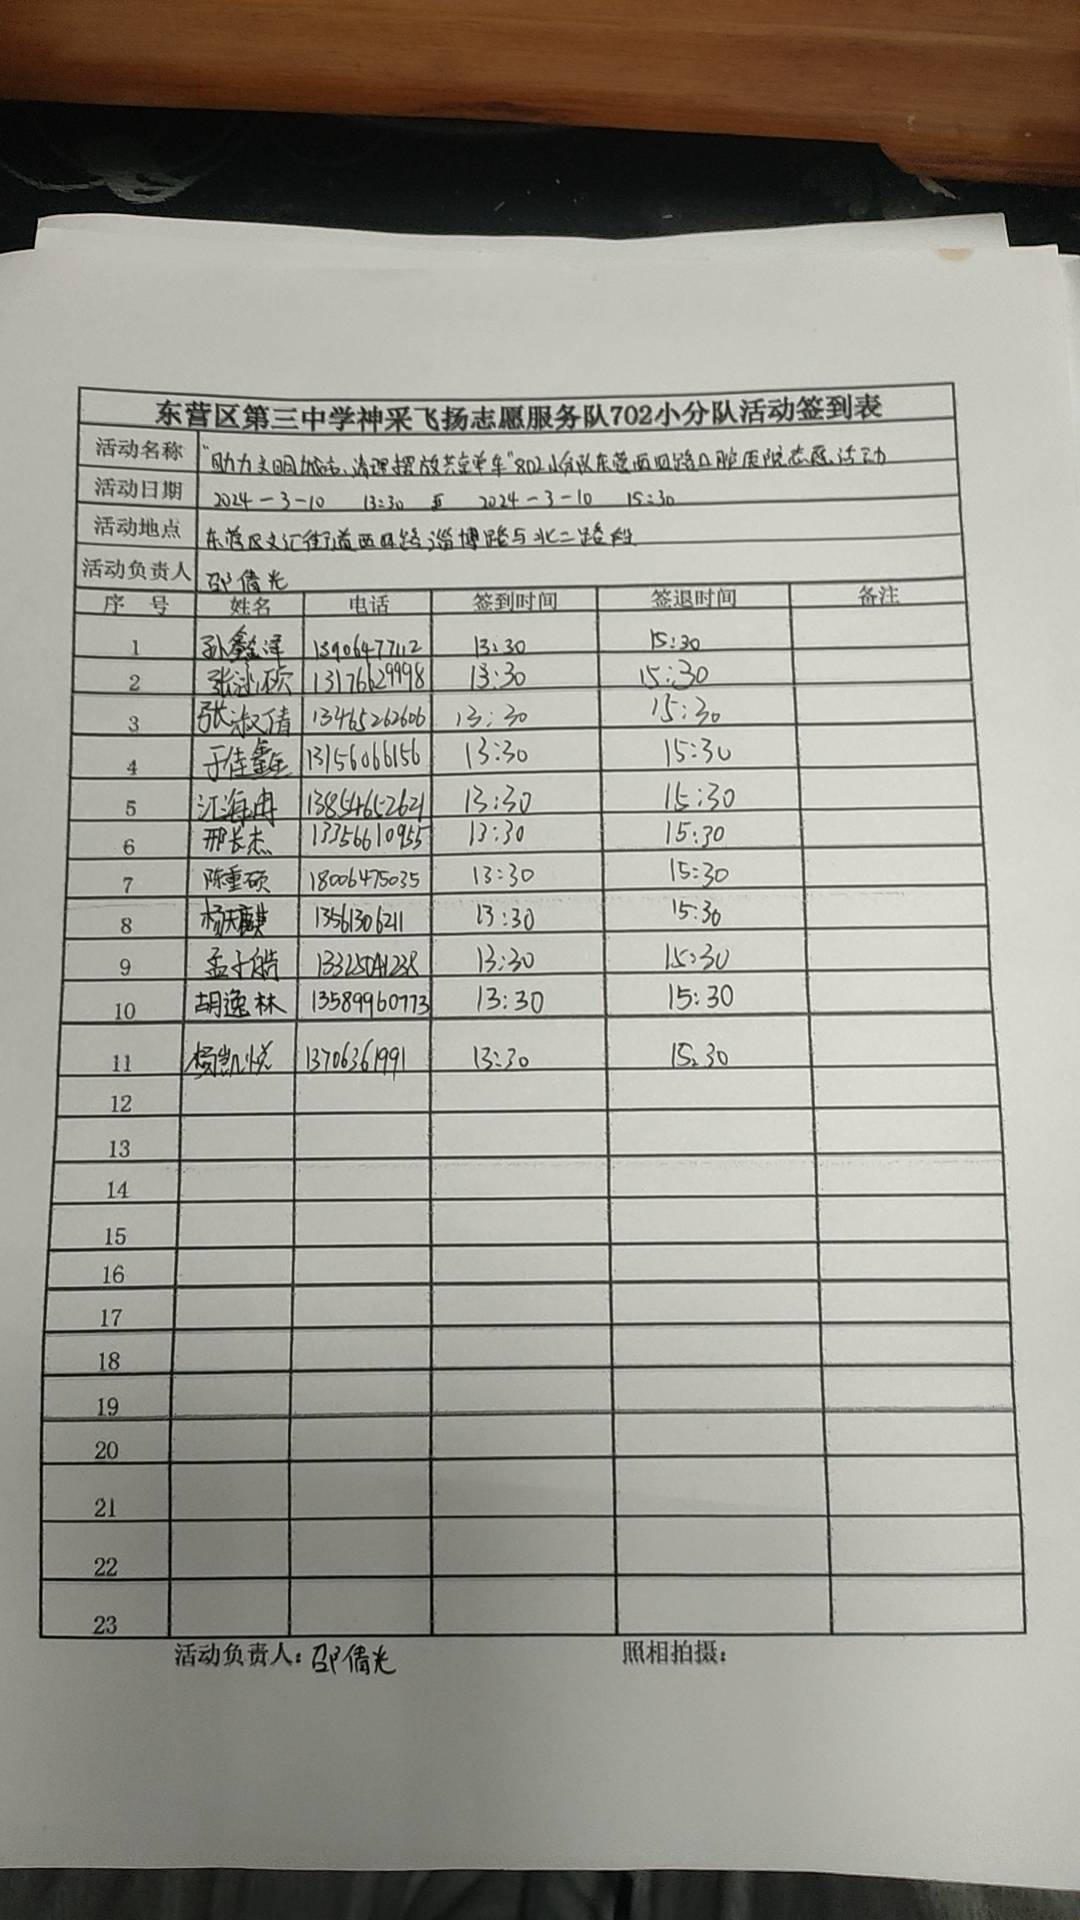 东营区第三中学神采飞扬志愿服务队702小分队活动签到表
活动名称 "助力文明城市、清理摆放共享单车"802小分队东营西四路口腔医院志愿活动
活动日期 2024-3-10 13:30 至 2024-3-10 15:30
活动地点 东营区文汇街道西四路淄博路与北二路段
活动负责人 邵倩光
序 号 姓名 电话 签到时间 签退时间 备注
1 孙鑫泽 13906477112 13:30 15:30
2 张泌硕 13176629998 13:30 15:30
3 张淑倩 13465262606 13:30 15:30
4 于佳鑫 13156066156 13:30 15:30
5 江海冉 13854652621 13:30 15:30
6 邢长杰 13356610955 13:30 15:30
7 陈重硕 18006475035 13:30 15:30
8 杨天麒 13561306211 13:30 15:30
9 孟子皓 13325041238 13:30 15:30
10 胡逸林 13589960773 13:30 15:30
11 杨凯悦 13706361991 13:30 15:30
12
13
14
15
16
17
18
19
20
21
22
23
活动负责人：邵倩光 照相拍摄：